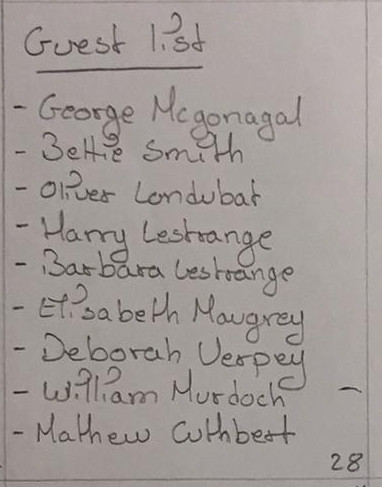 Guest list
- George Mcgonagal
- Bettie Smith
- Oliver Londubat
- Harry Lestrange
- Barbara Lestrange
- Elisabeth Maugrey
- Deborah Verpey
- William Murdoch -
- Mathew Cuthbert
28